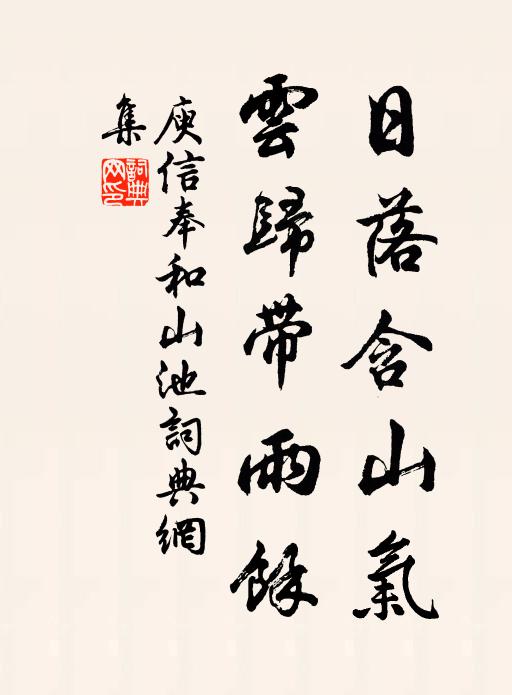 日落含山氣
雲歸帶雨餘
庾信奉和山池詞典網
集
詞典
網印